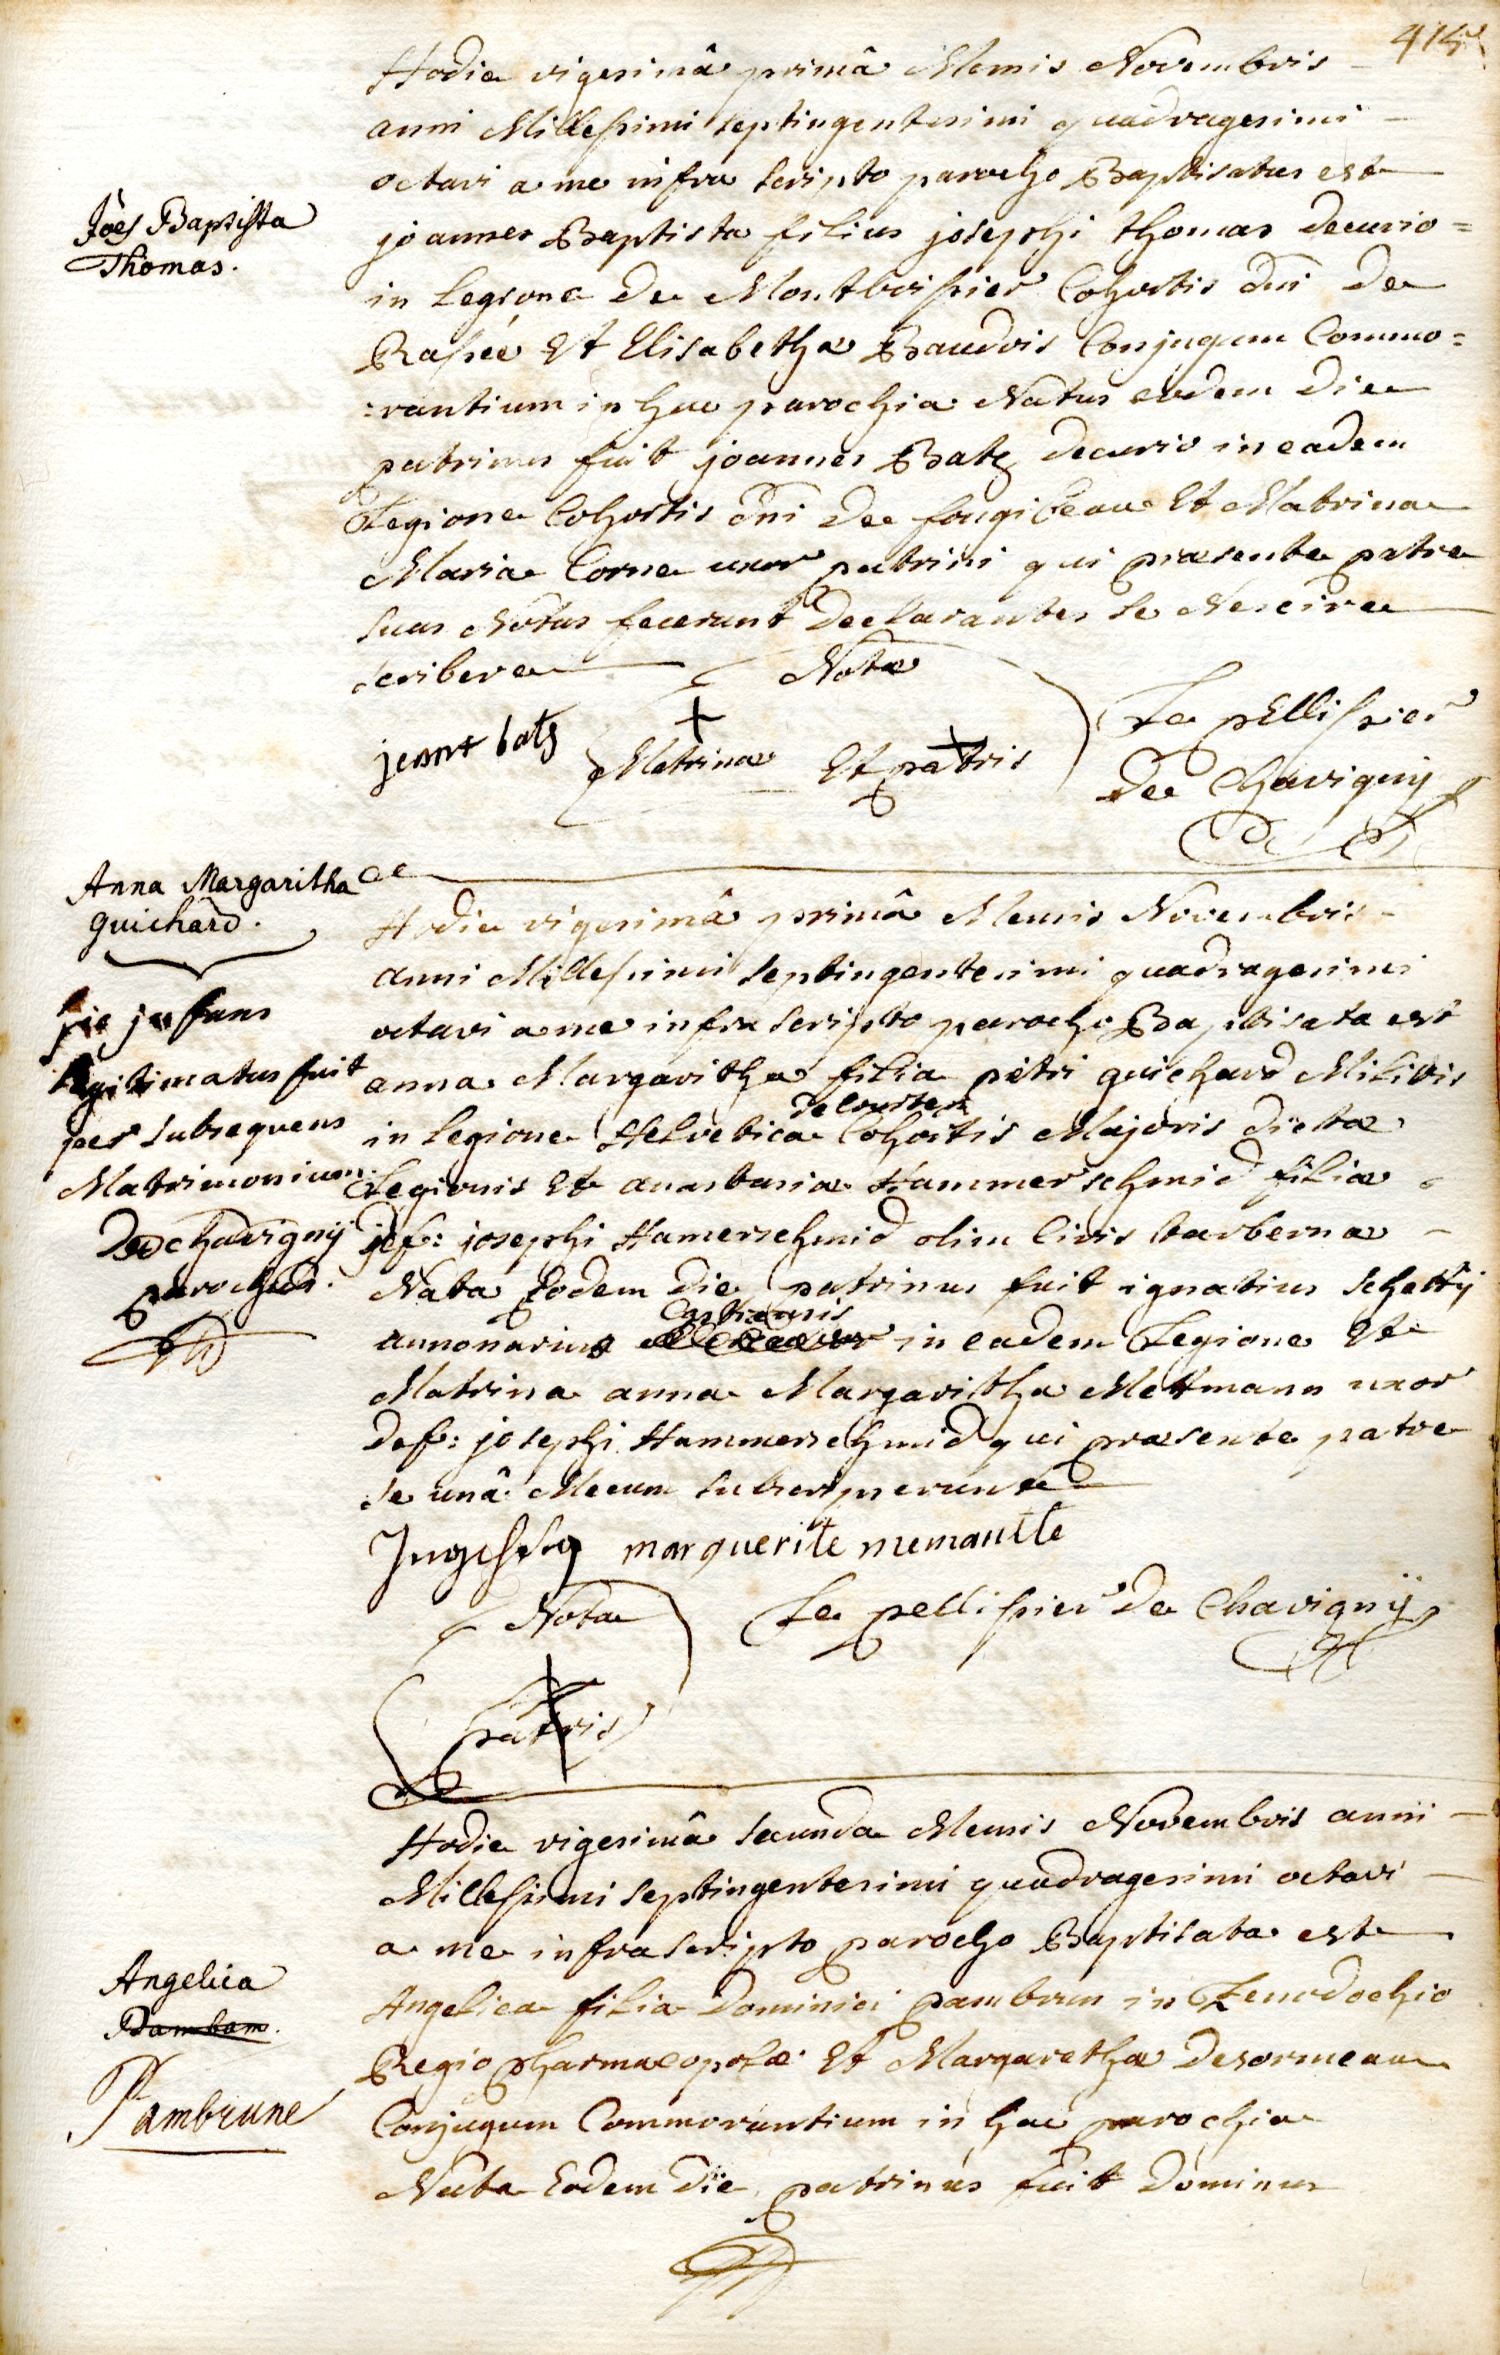 414
Hodie vigesimâ primâ Mensis Novembris
anni Millesimi septingentesimi quadragesimi
octavi a me infra scripto parocho Baptisatus est
Jões Baptista
Thomas.
joannes Baptista filius josephi thomas decurio=
in Legione de Montboissier Cohortis dni de
Rassée Et Elisabetha Baudris Conjugum Commo=
:rantium in hac parochia Natus eodem die
patrinus fuit joannes Batz decurio in eadem
Legione Cohortis dni de fougibeau Et Matrina
Maria Corne uxor patrini qui praesente patre
suas Notas fecerunt declarantes se Nescire
scribere
Notæ
jeant batz
Matrinæ Et patris
Le pellissier
De Chavigny
Anna Margaritha
guichard.
Hodie vigesimâ primâ Mensis Novembris
anni Millesimi septingentesimi quadragesimi
octavi a me infra scripto parocho Baptisata est
anna Margaritha filia petri guichard Militis
in legione Helvetica Cohortis Majoris dictæ
Legionis Et anastasia Hammerschmid filiæ
def: josephi Hamerschmid olim Civis tabernæ
Nata Eodem die patrinus fuit ignatius schetty
annonarius in eadem Legione Et
Matrina anna Margaritha Mettmann uxor
def: josephi Hammerschmid qui praesente patre
se unâ Mecum subscripserunt
hic infans
legitimatus fuit
per subsequens
Matrimonium.
De chavigny
parochus.
marguerite memantte
Nota
patris
Le pellissier De Chavigny
Hodie vigesimâ secunda Mensis Novembris anni
Millesimi septingentesimi quadragesimi octavi
a me infrascripto parocho Baptisata est
Angelica
Bambam.
Pambrune
Angelica filia Dominici pambrun in Xenodochio
Regio pharmacopolæ Et Margaretha Desormeau
Conjugum Commorantium in hac parochia
Nata Eodem die patrinus fuit Dominus